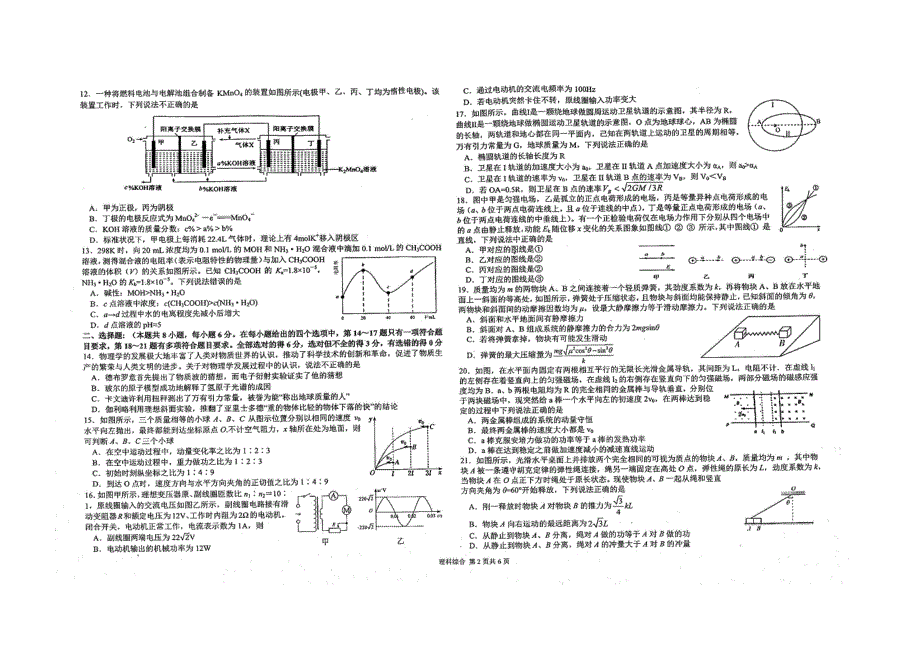 12. 一种将燃料电池与电解池组合制备 KMnO₄ 的装置如图所示(电极甲、乙、丙、丁均为惰性电极)。该
装置工作时，下列说法不正确的是
阳离子交换膜
补充气体X
阳离子交换膜
O₂
气体X
甲
乙
丙
丁
a%KOH溶液
K₂MnO₄溶液
c%KOH溶液
b%KOH溶液
A. 甲为正极，丙为阴极
B. 丁极的电极反应式为 MnO₄²⁻ －e⁻＝MnO₄⁻
C. KOH 溶液的质量分数：c%＞a%＞b%
D. 标准状况下，甲电极上每消耗 22.4L 气体时，理论上有 4molK⁺移入阴极区
13. 298K 时，向 20 mL 浓度均为 0.1 mol/L 的 MOH 和 NH₃・H₂O 混合液中滴加 0.1 mol/L 的 CH₃COOH
溶液，测得混合液的电阻率(表示电阻特性的物理量)与加入 CH₃COOH
溶液的体积（V）的关系如图所示，已知 CH₃COOH 的 Kₐ=1.8×10⁻⁵，
NH₃・H₂O 的 K_b=1.8×10⁻⁵。下列说法错误的是
A. 碱性：MOH＞NH₃・H₂O
B. c 点溶液中浓度：c(CH₃COOH)＞c(NH₃・H₂O)
C. a→d 过程中水的电离程度先减小后增大
D. d 点溶液的 pH≈5
电阻率
a
b
c
d
0
20
40
V/mL
二、选择题：（本大题共 8 小题，每小题 6 分。在每小题给出的四个选项中，第 14～17 题只有一项符合题
目要求，第 18～21 题有多项符合题目要求。全部选对的得 6 分，选对但不全的得 3 分，有选错的得 0 分
14. 物理学的发展极大地丰富了人类对物质世界的认识，推动了科学技术的创新和革命，促进了物质生
产的繁荣与人类文明的进步。关于对物理学发展过程中的认识，说法不正确的是
A. 德布罗意首先提出了物质波的猜想，而电子衍射实验证实了他的猜想
B. 玻尔的原子模型成功地解释了氢原子光谱的成因
C. 卡文迪许利用扭秤测出了万有引力常量，被誉为能“称出地球质量的人”
D. 伽利略利用理想斜面实验，推翻了亚里士多德“重的物体比轻的物体下落的快”的结论
15. 如图所示，三个质量相等的小球 A、B、C 从图示位置分别以相同的速度 v₀
水平向左抛出，最终都能到达坐标原点 O.不计空气阻力，x 轴所在处为地面，则
可判断 A、B、C 三个小球
A. 在空中运动过程中，动量变化率之比为 1∶2∶3
B. 在空中运动过程中，重力做功之比为 1∶2∶3
C. 初始时刻纵坐标之比为 1∶4∶9
D. 到达 O 点时，速度方向与水平方向夹角的正切值之比为 1∶4∶9
16. 如图甲所示，理想变压器原、副线圈匝数比 n₁：n₂＝10：
1，原线圈输入的交流电压如图乙所示，副线圈电路接有滑
动变阻器 R 和额定电压为 12V、工作时内阻为 2Ω 的电动机。
闭合开关，电动机正常工作，电流表示数为 1A，则
A. 副线圈两端电压为 22√2V
B. 电动机输出的机械功率为 12W
甲
乙
C. 通过电动机的交流电频率为 100Hz
D. 若电动机突然卡住不转，原线圈输入功率变大
17. 如图所示，曲线Ⅰ是一颗绕地球做圆周运动卫星轨道的示意图，其半径为 R，
曲线Ⅱ是一颗绕地球做椭圆运动卫星轨道的示意图，O 点为地球球心，AB 为椭圆
的长轴，两轨道和地心都在同一平面内，已知在两轨道上运动的卫星的周期相等，
万有引力常量为 G，地球质量为 M，下列说法正确的是
A. 椭圆轨道的长轴长度为 R
B. 卫星在 I 轨道的加速度大小为 a₀，卫星在 II 轨道 A 点加速度大小为 αA，则 α₀>αA
C. 卫星在 I 轨道的速率为 v₀，卫星在 II 轨道 B 点的速率为 VB，则 V₀＜VB
D. 若 OA=0.5R，则卫星在 B 点的速率 VB＜√(2GM/3R)
18. 图中甲是匀强电场，乙是孤立的正点电荷形成的电场，丙是等量异种点电荷形成的电
场（a、b 位于两点电荷连线上，且 a 位于连线的中点），丁是等量正点电荷形成的电场（a、
b 位于两点电荷连线的中垂线上）。有一个正检验电荷仅在电场力作用下分别从四个电场中
的 a 点由静止释放，动能 Ek 随位移 x 变化的关系图象如图线① ② ③ 所示，其中图线① 是
直线。下列说法中正确的是
A. 甲对应的图线是①
B. 乙对应的图线是②
C. 丙对应的图线是②
D. 丁对应的图线是③
甲
乙
丙
丁
19. 质量均为 m 的两物块 A、B 之间连接着一个轻质弹簧，其劲度系数为 k，再将物块 A、B 放在水平地
面上一斜面的等高处，如图所示，弹簧处于压缩状态，且物块与斜面均能保持静止，已知斜面的倾角为 θ，
两物块和斜面间的动摩擦因数均为 μ，设最大静摩擦力等于滑动摩擦力。下列说法正确的是
A. 斜面和水平地面间有静摩擦力
B. 斜面对 A、B 组成系统的静摩擦力的合力为 2mgsinθ
C. 若将弹簧拿掉，物块有可能发生滑动
D. 弹簧的最大压缩量为 mg√(μ²cos²θ−sin²θ)/k
A
B
20. 如图，在水平面内固定有两根相互平行的无限长光滑金属导轨，其间距为 L，电阻不计．在虚线 l₁
的左侧存在着竖直向上的匀强磁场，在虚线 l₂ 的右侧存在竖直向下的匀强磁场，两部分磁场的磁感应强
度均为 B．a、b 两根电阻均为 R 的完全相同的金属棒与导轨垂直，分别位
于两块磁场中，现突然给 a 棒一个水平向左的初速度 2v₀，在两棒达到稳
定的过程中下列说法正确的是
A. 两金属棒组成的系统的动量守恒
B. 最终两金属棒的速度大小都是 v₀
C. a 棒克服安培力做功的功率等于 a 棒的发热功率
D. a 棒在达到稳定之前做加速度减小的减速直线运动
21. 如图所示，光滑水平桌面上并排放两个完全相同的可视为质点的物块 A、B，质量均为 m ，其中物
块 A 被一条遵守胡克定律的弹性绳连接，绳另一端固定在高处 O 点，弹性绳的原长为 L，劲度系数为 k，
当物块 A 在 O 点正下方时绳处于原长状态。现使物块 A、B 一起从绳和竖直
方向夹角为 θ=60°开始释放，下列说法正确的是
A. 刚一释放时物块 A 对物块 B 的推力为 √3/4 kL
B. 物块 A 向右运动的最远距离为 2√3L
C. 从静止到物块 A、B 分离，绳对 A 做的功等于 A 对 B 做的功
D. 从静止到物块 A、B 分离，绳对 A 的冲量大于 A 对 B 的冲量
理科综合 第 2 页共 6 页